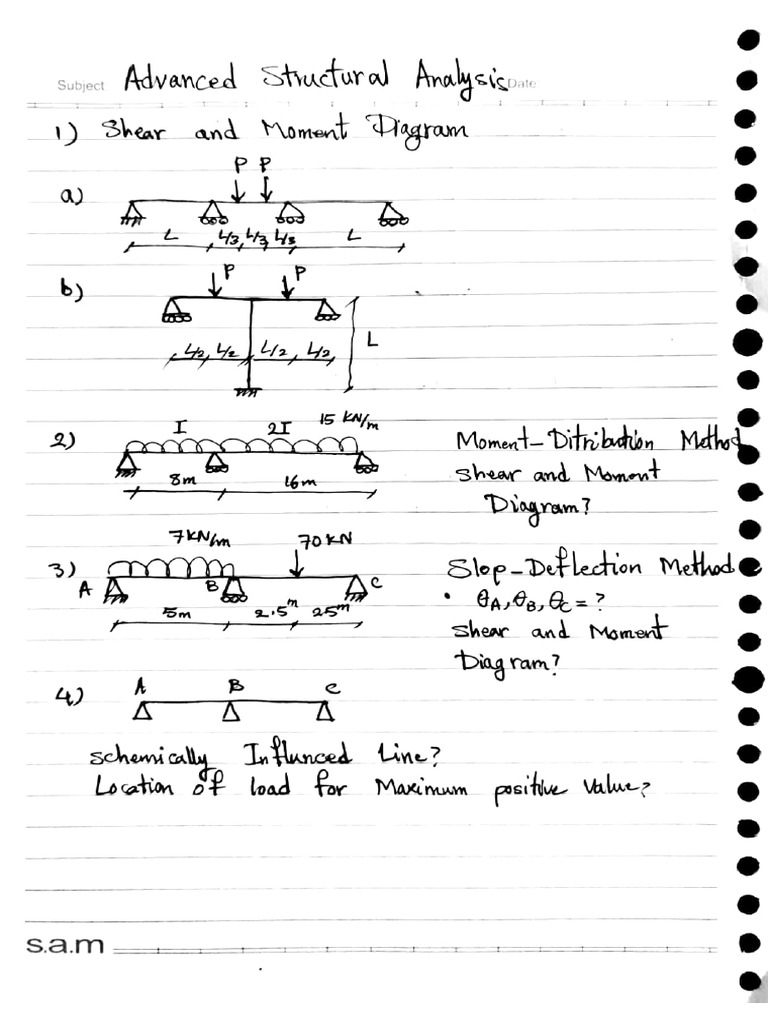 Subject: Advanced Structural Analysis Date
1) Shear and Moment Diagram
P P
a)
L L/3, L/3, L/3 L
b) P P
L/2, L/2 L/2, L/2 L
2) I 2I 15 KN/m Moment-Ditribution Method
8m 16m Shear and Moment
Diagram?
7KN/m 70KN
3) A B C Slop-Deflection Method
5m 2.5m 25m • θA, θB, θC = ?
Shear and Moment
Diagram?
4) A B C
schemically Influnced Line?
Location of load for Maximum positive Value?
s.a.m